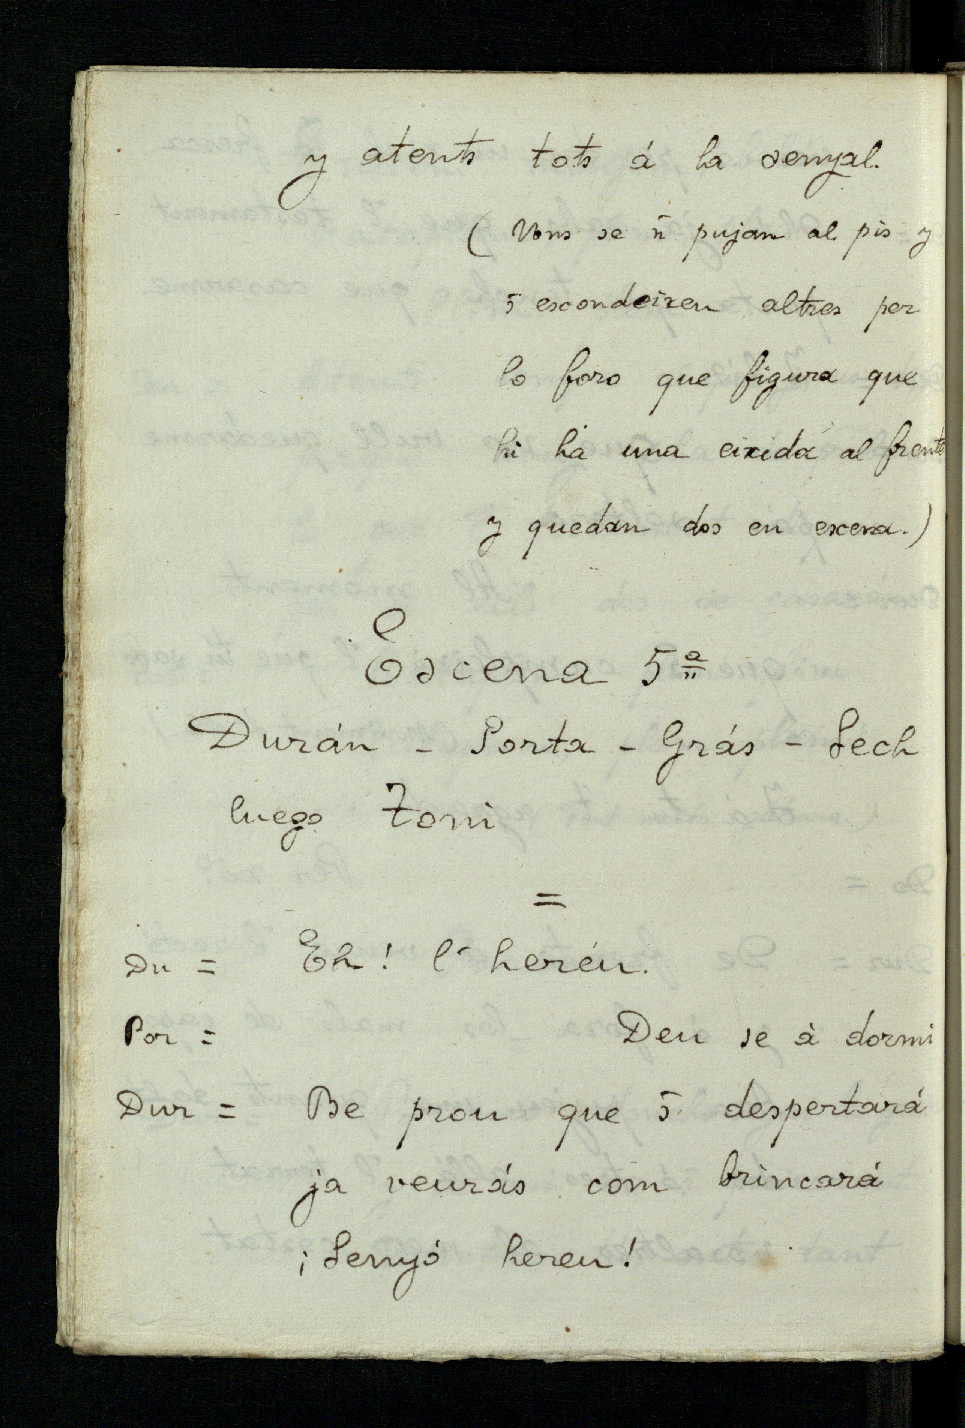 y atents tots á la senyal.
(Vons se n̄ pujan al pis y
s̄ escondeixen altres per
lo foro que figura que
hi há una eixida al frente
y quedan dos en escena.)
Escena 5ª
Durán - Porta - Grás - Sech
luego Toni
=
Du = Eh! l' heréu.
Por = Deu se á dormi
Dur = Be prou que s̄ despertará
ja veurás com brincará
¡Senyó hereu!